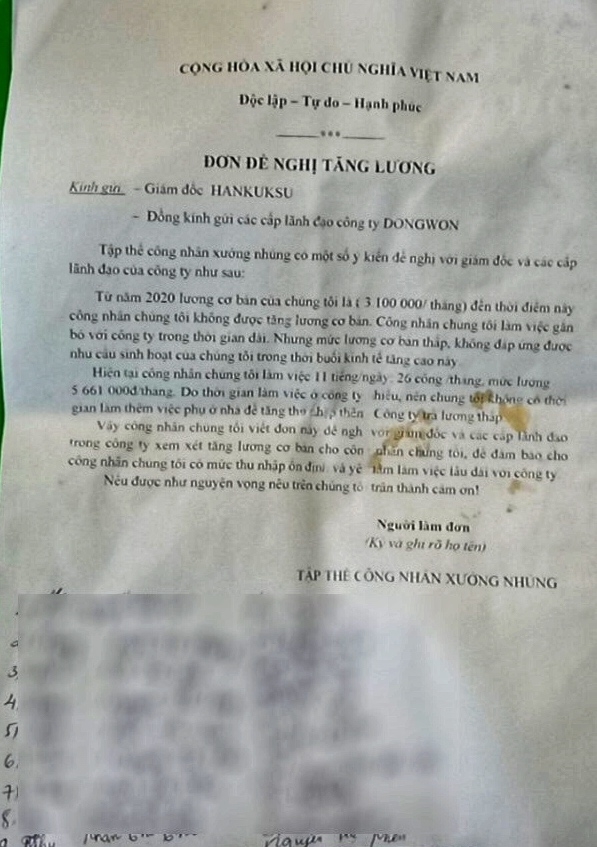 CỘNG HÒA XÃ HỘI CHỦ NGHĨA VIỆT NAM
Độc lập – Tự do – Hạnh phúc
***
ĐƠN ĐỀ NGHỊ TĂNG LƯƠNG
Kính gửi – Giám đốc HANKUKSU
– Đồng kính gửi các cấp lãnh đạo công ty DONGWON
Tập thể công nhân xưởng nhúng có một số ý kiến đề nghị với giám đốc và các cấp
lãnh đạo của công ty như sau:
Từ năm 2020 lương cơ bản của chúng tôi là ( 3.100 000/ tháng) đến thời điểm này
công nhân chúng tôi không được tăng lương cơ bản. Công nhân chúng tôi làm việc gắn
bó với công ty trong thời gian dài. Nhưng mức lương cơ bản thấp, không đáp ứng được
nhu cầu sinh hoạt của chúng tôi trong thời buổi kinh tế tăng cao này.
Hiện tại công nhân chúng tôi làm việc 11 tiếng/ngày, 26 công /tháng, mức lương
5 661 000đ/tháng. Do thời gian làm việc ở công ty nhiều, nên chúng tôi không có thời
gian làm thêm việc phụ ở nhà để tăng thu nhập thêm Công ty trả lương thấp.
Vậy công nhân chúng tôi viết đơn này đề ngh với giám đốc và các cấp lãnh đạo
trong công ty xem xét tăng lương cơ bản cho côn nhân chúng tôi, để đảm bảo cho
công nhân chúng tôi có mức thu nhập ổn định và yê tâm làm việc lâu dài với công ty.
Nếu được như nguyện vọng nêu trên chúng tô trân thành cảm ơn!
Người làm đơn
(Ký và ghi rõ họ tên)
TẬP THỂ CÔNG NHÂN XƯỞNG NHÚNG
3,
4,
5)
6.
7)
8.